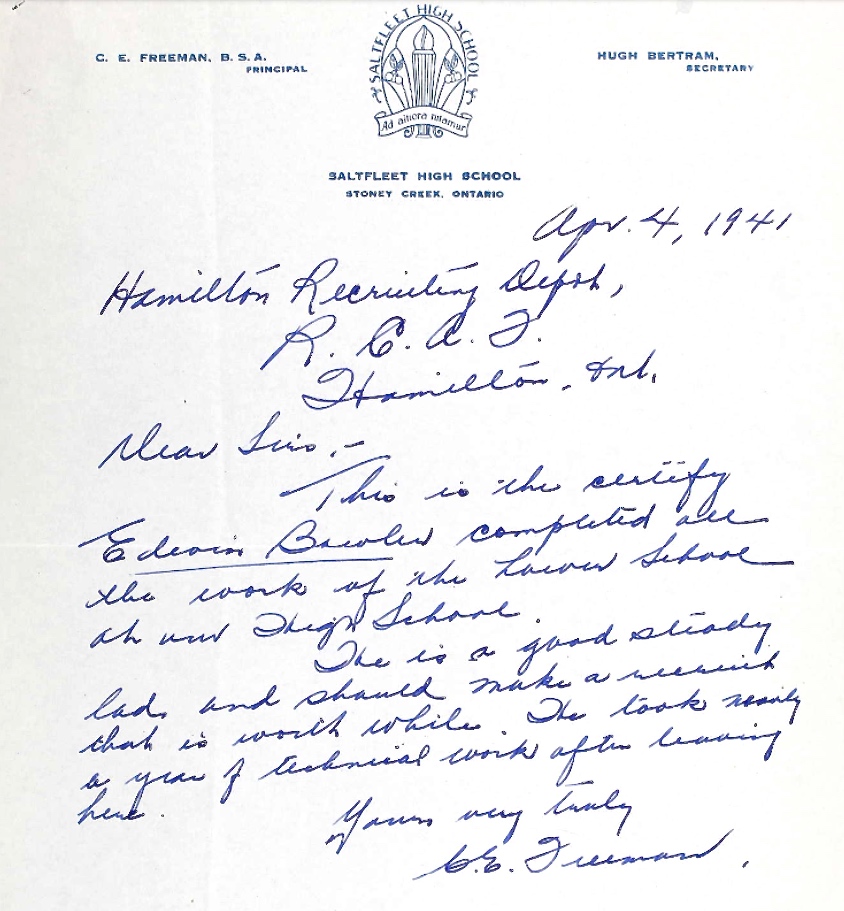 C. E. FREEMAN, B. S. A.
PRINCIPAL
SALTFLEET HIGH SCHOOL
Ad altiora nitamur
HUGH BERTRAM,
SECRETARY
SALTFLEET HIGH SCHOOL
STONEY CREEK, ONTARIO
Apr. 4, 1941
Hamilton Recruiting Depot,
R. C. A. F.
Hamilton, Ont.
Dear Sirs,-
This is the certify
Edwin Bowler completed all
the work of the Lower School
at our High School.
He is a good steady
lad, and should make a recruit
that is worth while. He took nearly
a year of technical work after leaving
here.
Yours very truly
C.E. Freeman.